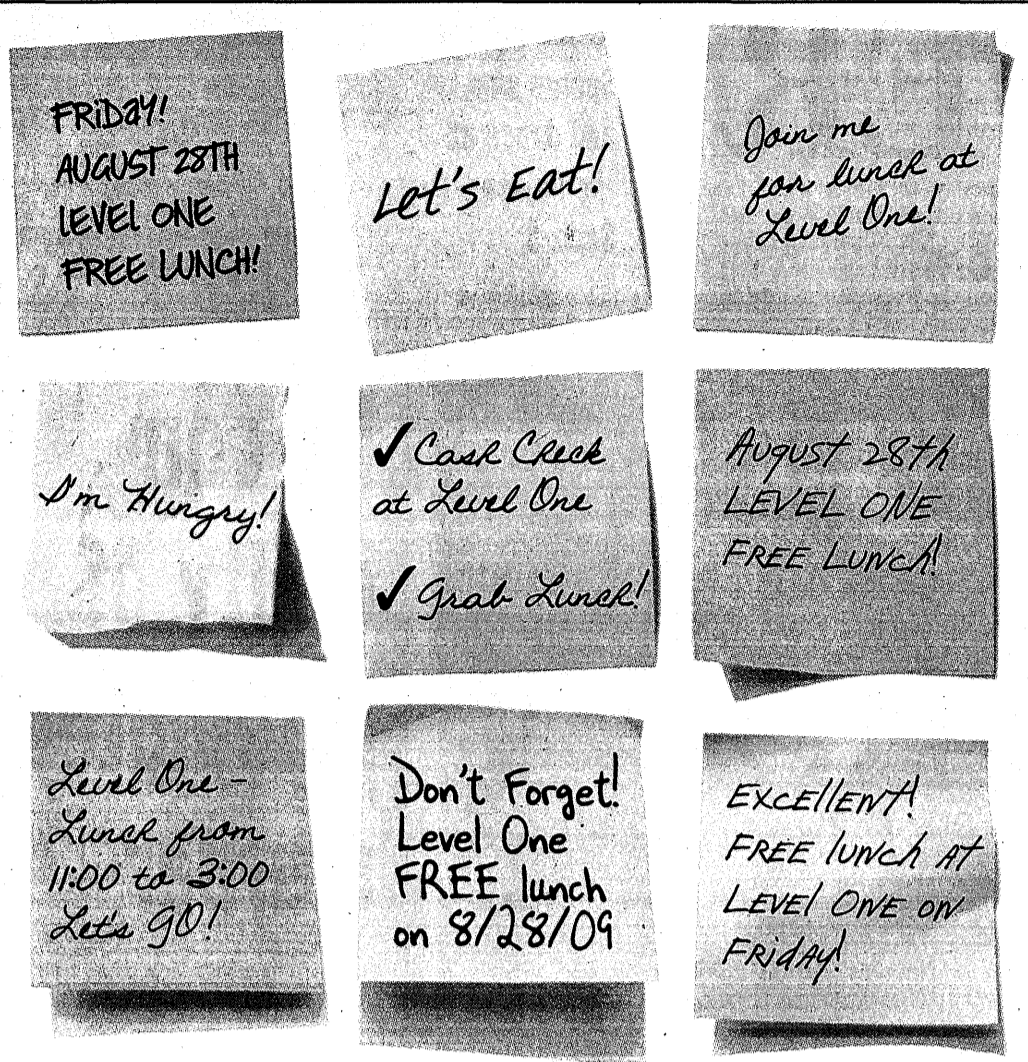 FRiDaY!
AUGUST 28TH
LEVEL ONE
FREE LUNCH!
Let's Eat!
Join me
for lunch at
Level One!
I'm Hungry!
✓ Cash Check
at Level One
✓ Grab Lunch!
August 28th
LEVEL ONE
FREE Lunch!
Level One -
Lunch from
11:00 to 3:00
Let's GO!
Don't Forget!
Level One
FREE lunch
on 8/28/09
ExcellENT!
FREE lunch AT
LEVEl ONE ON
FRidAy!